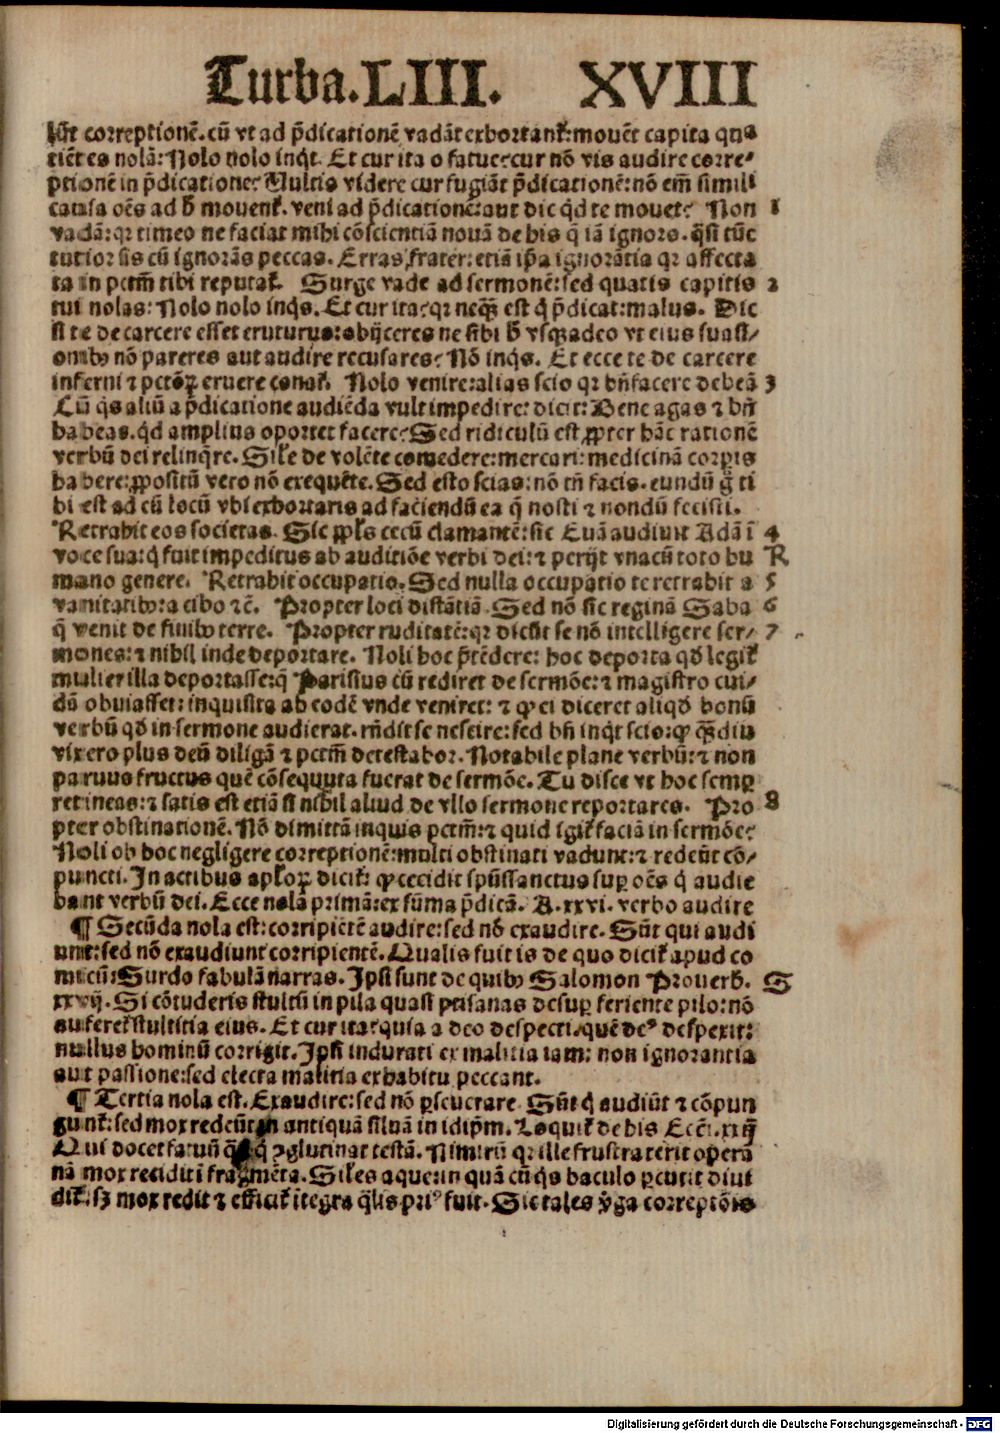 Turba.LIII. XVIII
lūt correptionē.cū vt ad p̄dicationē vadāt exhortant᷑:mouēt capita qua
tiētes nolā:Nolo nolo inq̄t. Et cur ita o fatue:cur nō vis audire corre⸗
ptionē in p̄dicatione? Multis videre cur fugiāt p̄dicationē:nō em̄ simili
causa oēs ad h̄ mouent᷑. veni ad p̄dicationē:aut dic q̄d te mouet? Non 1
vadā:qr timeo ne faciat mihi cōscientiā nouā de his q̄ iā ignoro.q̄si tūc
tutior sis cū ignorās peccas. Erras frater:etiā ip̄a ignorātia qr affecta
ta in pctm̄ tibi reputat᷑. Surge vade ad sermonē:sed quatis capitis 2
tui nolas:Nolo nolo inq̄s. Et cur ita?qr neq̄ꝫ est q̄ p̄dicat:malus. Dic
si te de carcere esset eruturus:abijceres ne sibi h̄ vsq̄ꝫadeo vt eius suasi⸗
onibꝰ nō pareres aut audire recusares? Nō inq̄s. Et ecce te de carcere
inferni ⁊ pctōꝝ eruere conat᷑. Nolo venire:alias scio qr bn̄facere debeā 3
Cū q̄s aliū a p̄dicatione audiēda vult impedire:dicit:Bene agas ⁊ bn̄
habeas.q̄d amplius oportet facere?Sed ridiculū est ꝓpter hāc rationē
verbū dei relinq̄re. Sil'e de volēte comedere:mercari:medicinā corpꝭis
habere:ꝓpositū vero nō exequēte. Sed esto scias:nō tn̄ facis.eundū g̊ ti
bi est ad eū locū vbi exhortaris ad faciendū ea q̄ nosti ⁊ nondū fecisti.
Retrahit eos societas. Sic ppl's cecū clamantē:sic Euā audiuit Adā ī 4
voce sua:q̄ fuit impeditus ab auditiōe verbi dei:⁊ perijt vnacū toto hu R
mano genere. Retrahit occupatio. Sed nulla occupatio te retrahit a 5
vanitatibꝰ:a cibo ⁊c̄. Propter loci distātiā. Sed nō sic reginā Saba 6
q̄ venit de finibꝰ terre. Propter ruditatē:qr dicūt se nō intelligere ser⸗ 7
mones:⁊ nihil inde deportare. Noli hoc p̄tēdere: hoc deporta qd̄ legit᷑
mulier illa deportasse:q̄ Parisius cū rediret de sermōe:⁊ magistro cui⸗
dā obuiasset:inquisita ab eodē vnde veniret: ⁊ ꝙ ei diceret aliqd̄ bonū
verbū qd̄ in sermone audierat.rn̄dit se nescire:sed bn̄ inq̄t scio:ꝙ q̄ꝫdiu
vixero plus deū diligā ⁊ pctm̄ detestabor. Notabile plane verbū:⁊ non
paruus fructus quē cōsequuta fuerat de sermōe. Tu disce vt hoc semꝑ
retineas:⁊ satis est etiā si nihil aliud de vllo sermone reportares. Pro 8
pter obstinationē. Nō dimittā inquis pctm̄:⁊ quid igit᷑ faciā in sermōe?
Noli ob hoc negligere correptionē:multi obstinati vadunt:⁊ redeūt cō⸗
puncti. In actibus apl'oꝝ dicit᷑: ꝙ cecidit spūssanctus suꝑ oēs q̄ audie
bant verbū dei. Ecce nolā primā:ex sūma p̄dicā. A.xxvi. verbo audire
¶ Secūda nola est:corripiētē audire:sed nō exaudire. Sūt qui audi
unt:sed nō exaudiunt corripientē. Qualis fuit is de quo dicit᷑ apud co
micū:Surdo fabulā narras. Ipsi sunt de quibꝰ Salomon Prouerb. S
xxvij. Si cōtuderis stultū in pila quasi ptisanas desuꝑ feriente pilo:nō
auferet᷑ stultitia eius. Et cur ita?quia a deo despecti.quē deꝰ despexit:
nullus hominū corrigit. Ipsi indurati ex malitia iam: non ignorantia
aut passione:sed electa malitia ex habitu peccant.
¶ Tertia nola est. Exaudire:sed nō ꝑseuerare. Sūt q̄ audiūt ⁊ cōpun
gunt᷑:sed mox redeūt in antiquā siluā in idip̄m. Loquit᷑ de his Ecc̄i.xxij
Qui docet fatuū q̄si q̄ ꝯglutinat testā. Nimirū qr ille frustra terit operā
nā mox recidit ī fragmēta. Sil'es aque:in quā cū q̄s baculo ꝑcutit diui
dit᷑.sꝫ mox redit ⁊ efficit᷑ ītegra q̄lis priꝰ fuit. Sic tales v̄ga correptōis
Digitalisierung gefördert durch die Deutsche Forschungsgemeinschaft - DFG